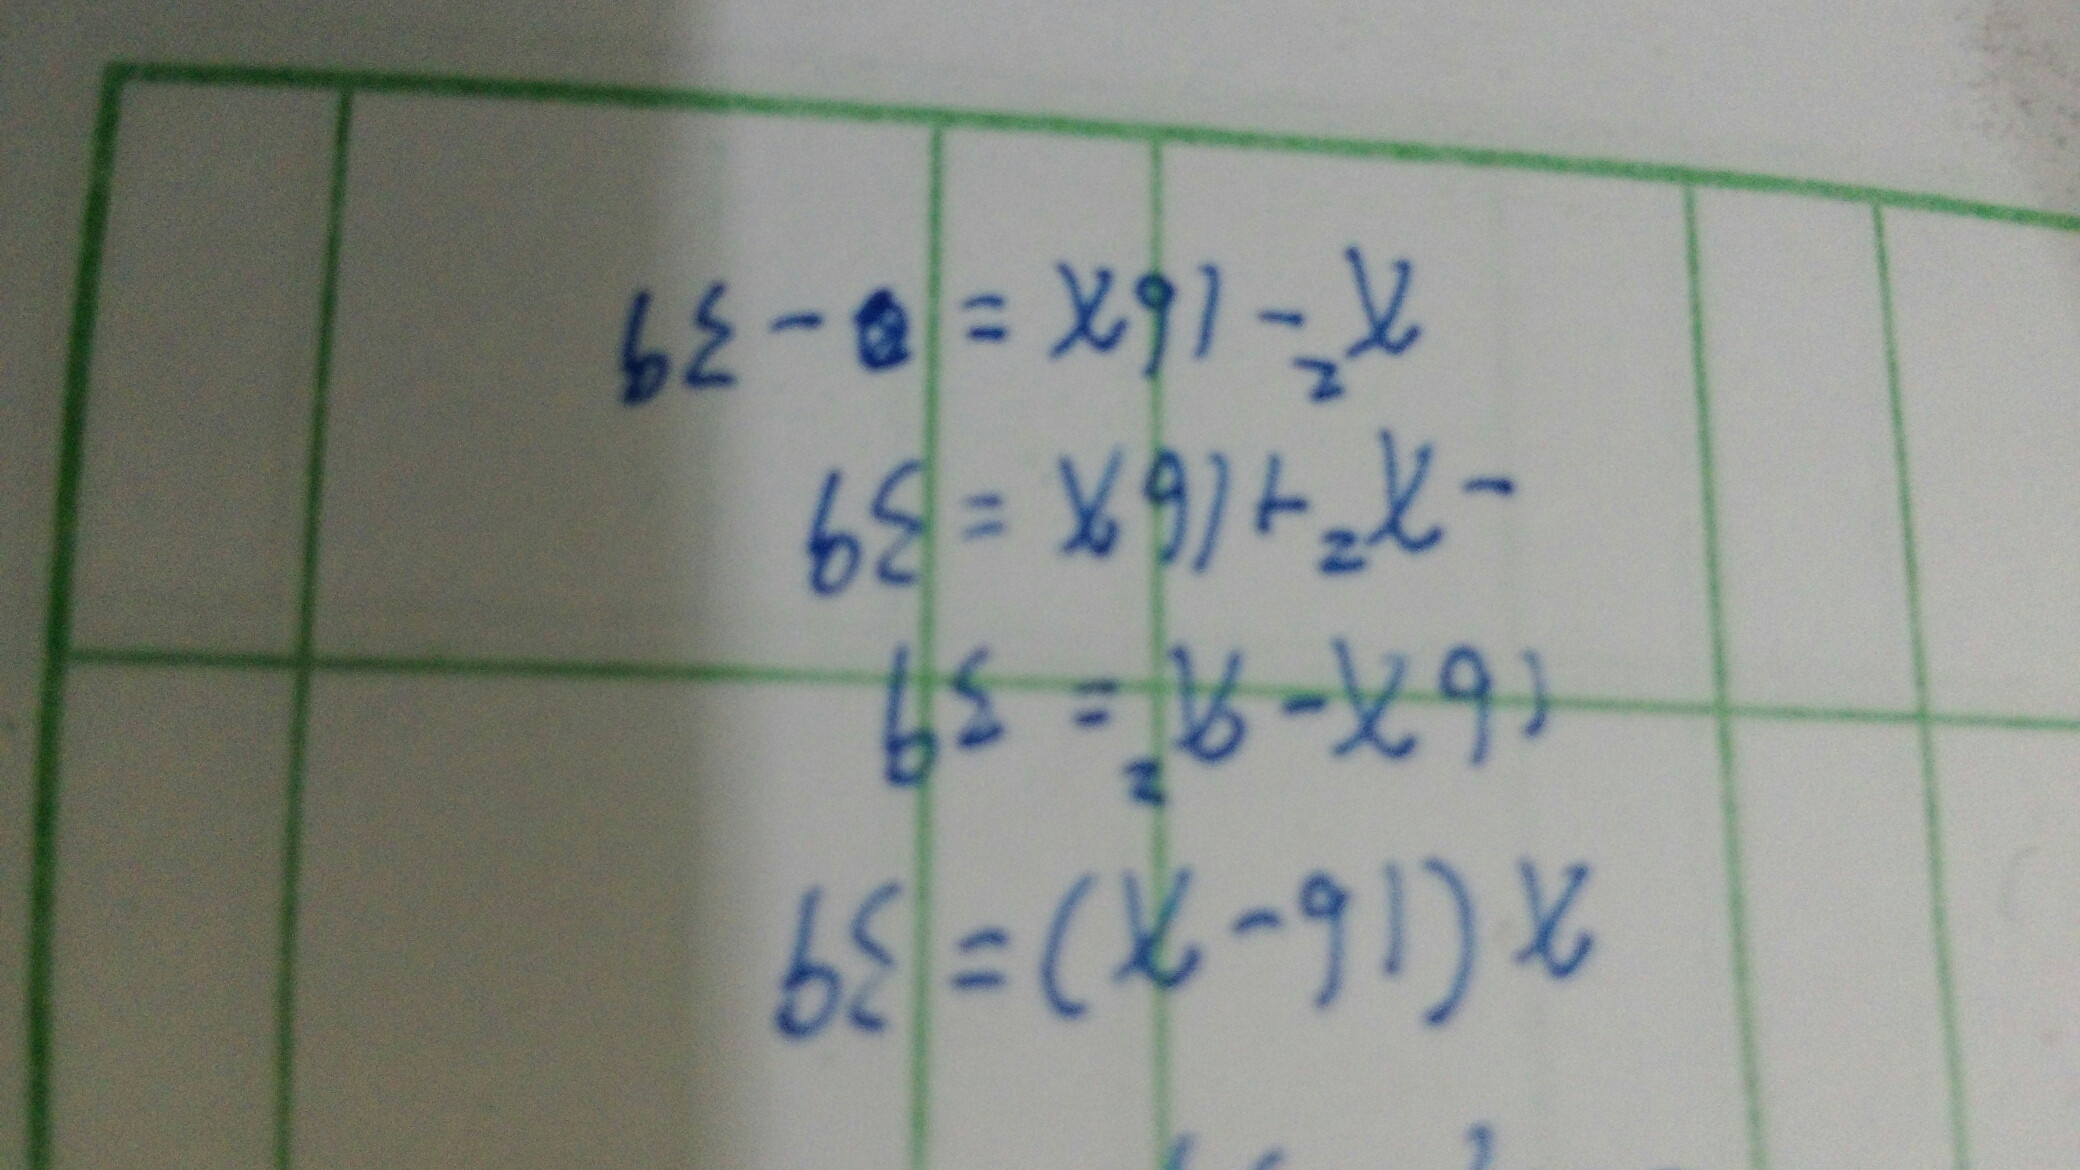 x(16-x)=39
16x-x²=39
-x²+16x=39
x²-16x=-39